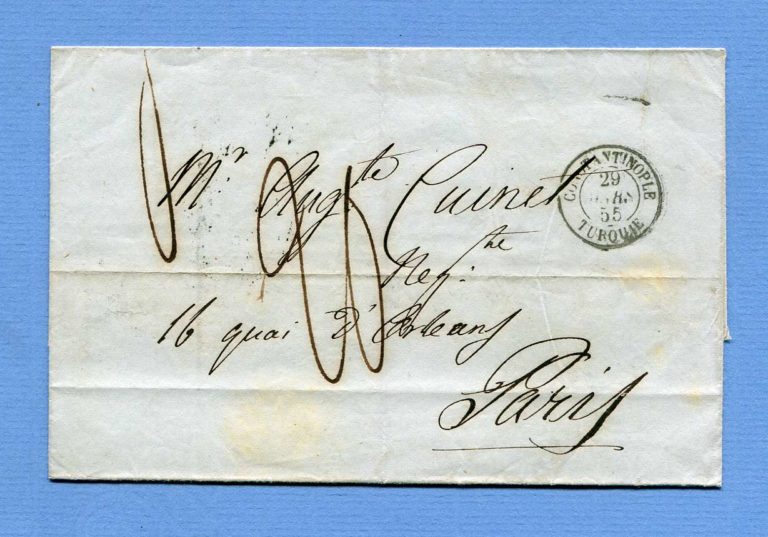 Mr Augte Cuinet
Negte
16 quai d'Orleans
Paris
CONSTANTINOPLE
29
MARS
55
TURQUIE